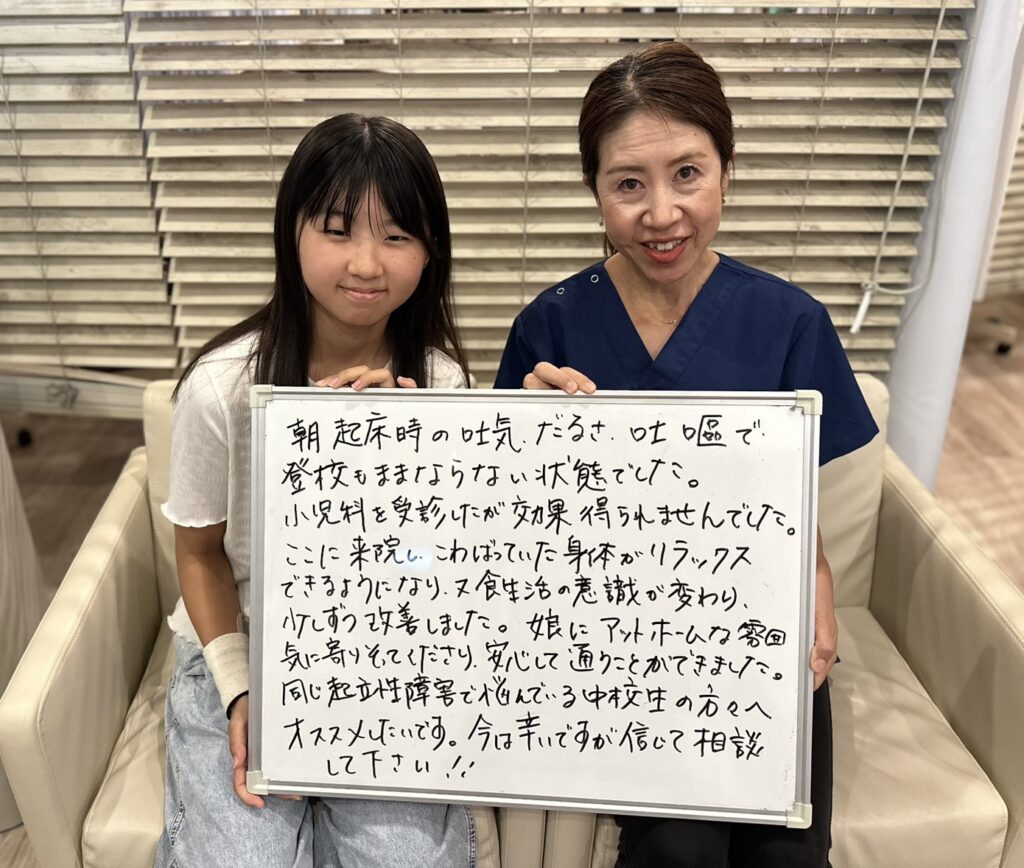 朝起床時の吐気、だるさ、吐嘔で
登校もままならない状態でした。
小児科を受診したが効果得られませんでした。
ここに来院し、こわばっていた身体がリラックス
できるようになり、又食生活の意識が変わり、
少しずつ改善しました。娘にアットホームな雰囲
気に寄りそってくださり、安心して通うことができました。
同じ起立性障害で悩んでいる中校生の方々へ
オススメしたいです。今は辛いですが信じて相談
して下さい!!